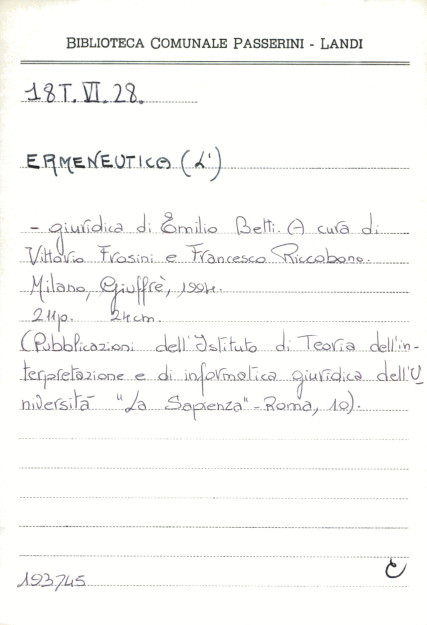 BIBLIOTECA COMUNALE PASSERINI - LANDI
18T.VI.28.
ERMENEUTICA (L')
- giuridica di Emilio Betti. A cura di
Vittorio Frosini e Francesco Riccobono.
Milano, Giuffrè, 1994.
211p. 24cm.
(Pubblicazioni dell'Istituto di Teoria dell'in-
terpretazione e di informatica giuridica dell'U
niversità "La Sapienza" - Roma, 10).
C
193745